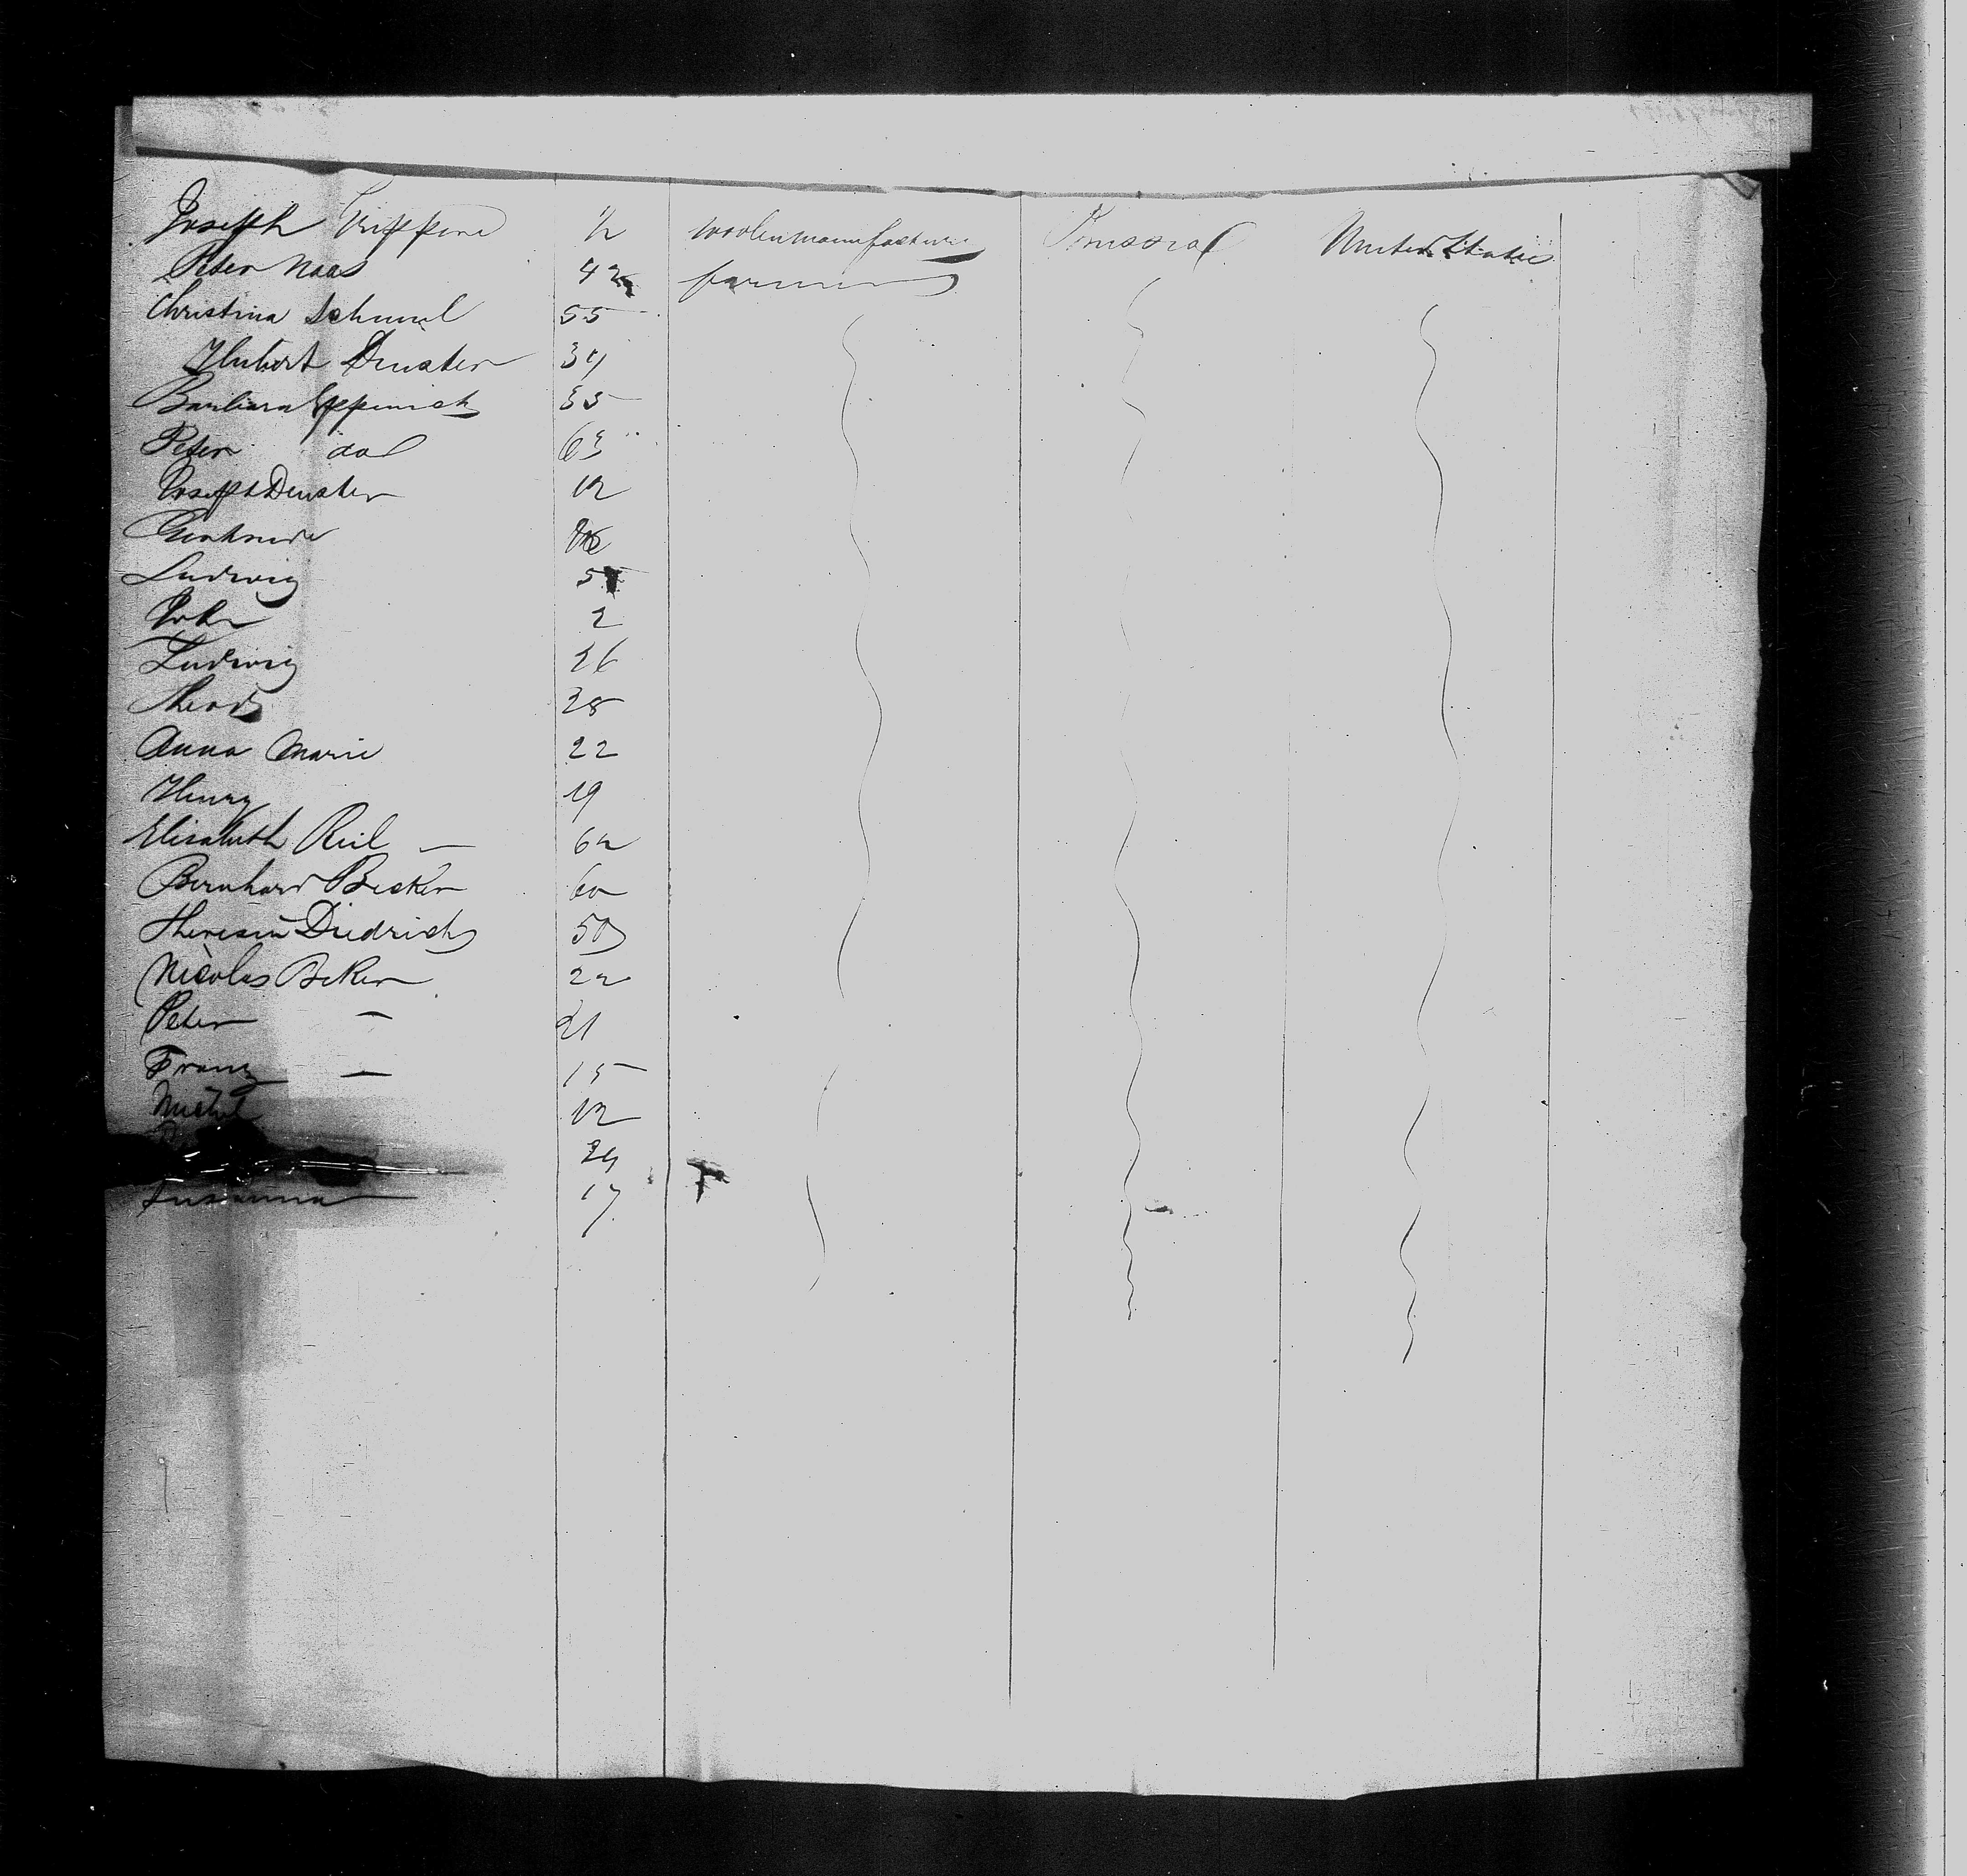 Joseph ½ woolenmanufacturer Prussia United States
Peter Naas 42 farmer
Christina Schumel 55
Hubert Deuster 34
Barbara Eppenich 55
Peter do 63
Joseph Deuster 12
Gertrude
Ludwig 5
John 2
Ludwig 26
28
Anna Marie 22
Henry 19
Elisabeth Reil — 62
Bernhard Becker 60
Theresia Diedrich 50
Nicolas Beker 22
Peter — 21
Franz — 15
Michel 12
24
Susanna 17